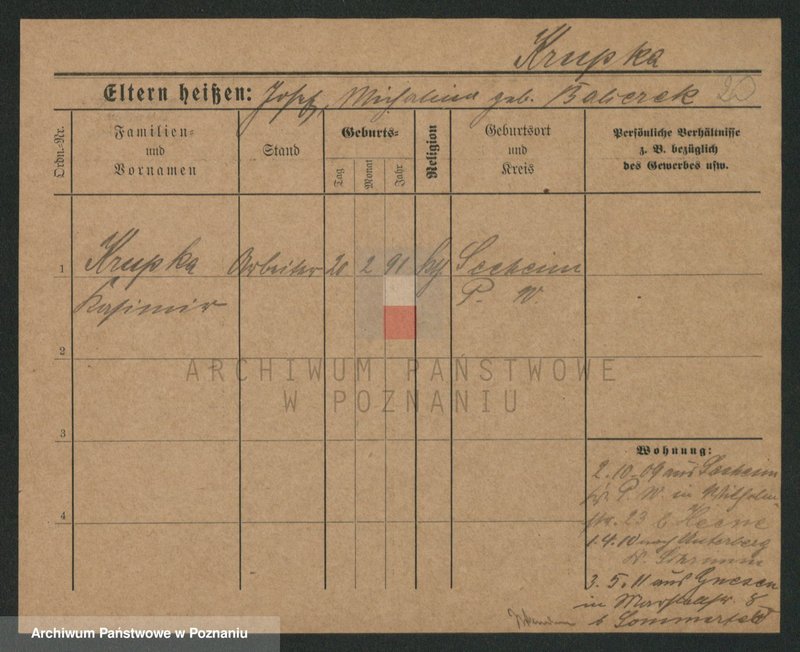 Krupka
Eltern heißen: Josef, Michalina geb. Balicrek
Ordn.-Nr.
Familien-
und
Vornamen
Stand
Geburts-
Tag
Monat
Jahr
Religion
Geburtsort
und
Kreis
Persönliche Verhältnisse
z. B. bezüglich
des Gewerbes usw.
1 Krupka Arbeiter 20 2 91 kth Seeheim
Kasimir P. W.
2
ARCHIWUM PAŃSTWOWE
W POZNANIU
3
Wohnung:
2.10.09 aus Seeheim
Kr. P. W. in Wilhelm
str. 23 b Heene
4
1.4.10 nach Unterberg
Kr. Schrimm
3.5.11 aus Gnesen
in Marstallstr. 8
b Sommerfeld
Archiwum Państwowe w Poznaniu